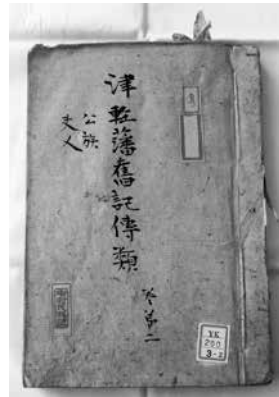 津軽藩舊記傳類
公族
夫人
巻第二
YK
200
3-2